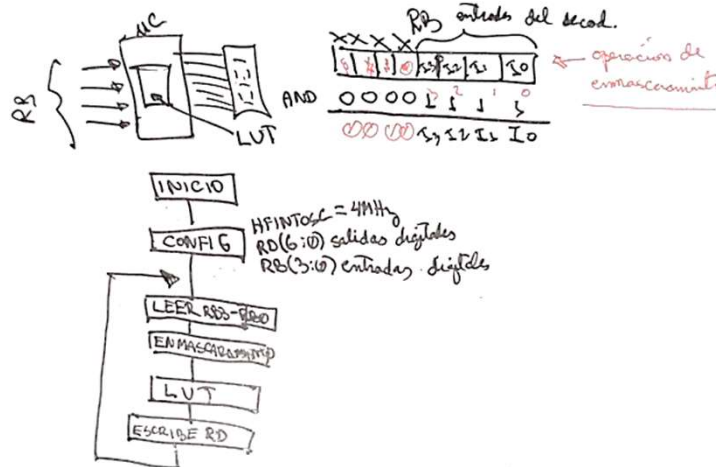 μC
RB
LUT
RB entradas del decod.
X X X X
I3 I2 I1 I0
operación de
enmascaramiento
AND 0 0 0 0 1 1 1 1
0 0 0 0 I3 I2 I1 I0
INICIO
CONFIG
HFINTOSC = 4MHz
RD(6:0) salidas digitales
RB(3:0) entradas digitales
LEER RB3-RB0
ENMASCARAMIENTO
LUT
ESCRIBE RD